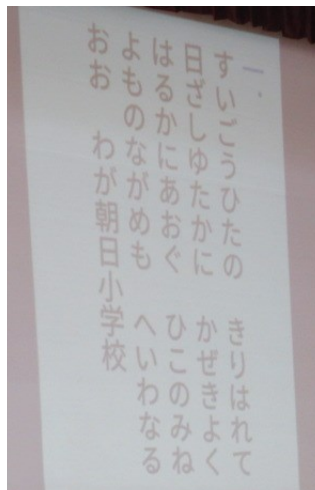 一．
すいごうひたの　きりはれて
日ざしゆたかに　かぜきよく
はるかにあおぐ　ひこのみね
よものながめも　へいわなる
おお　わが朝日小学校